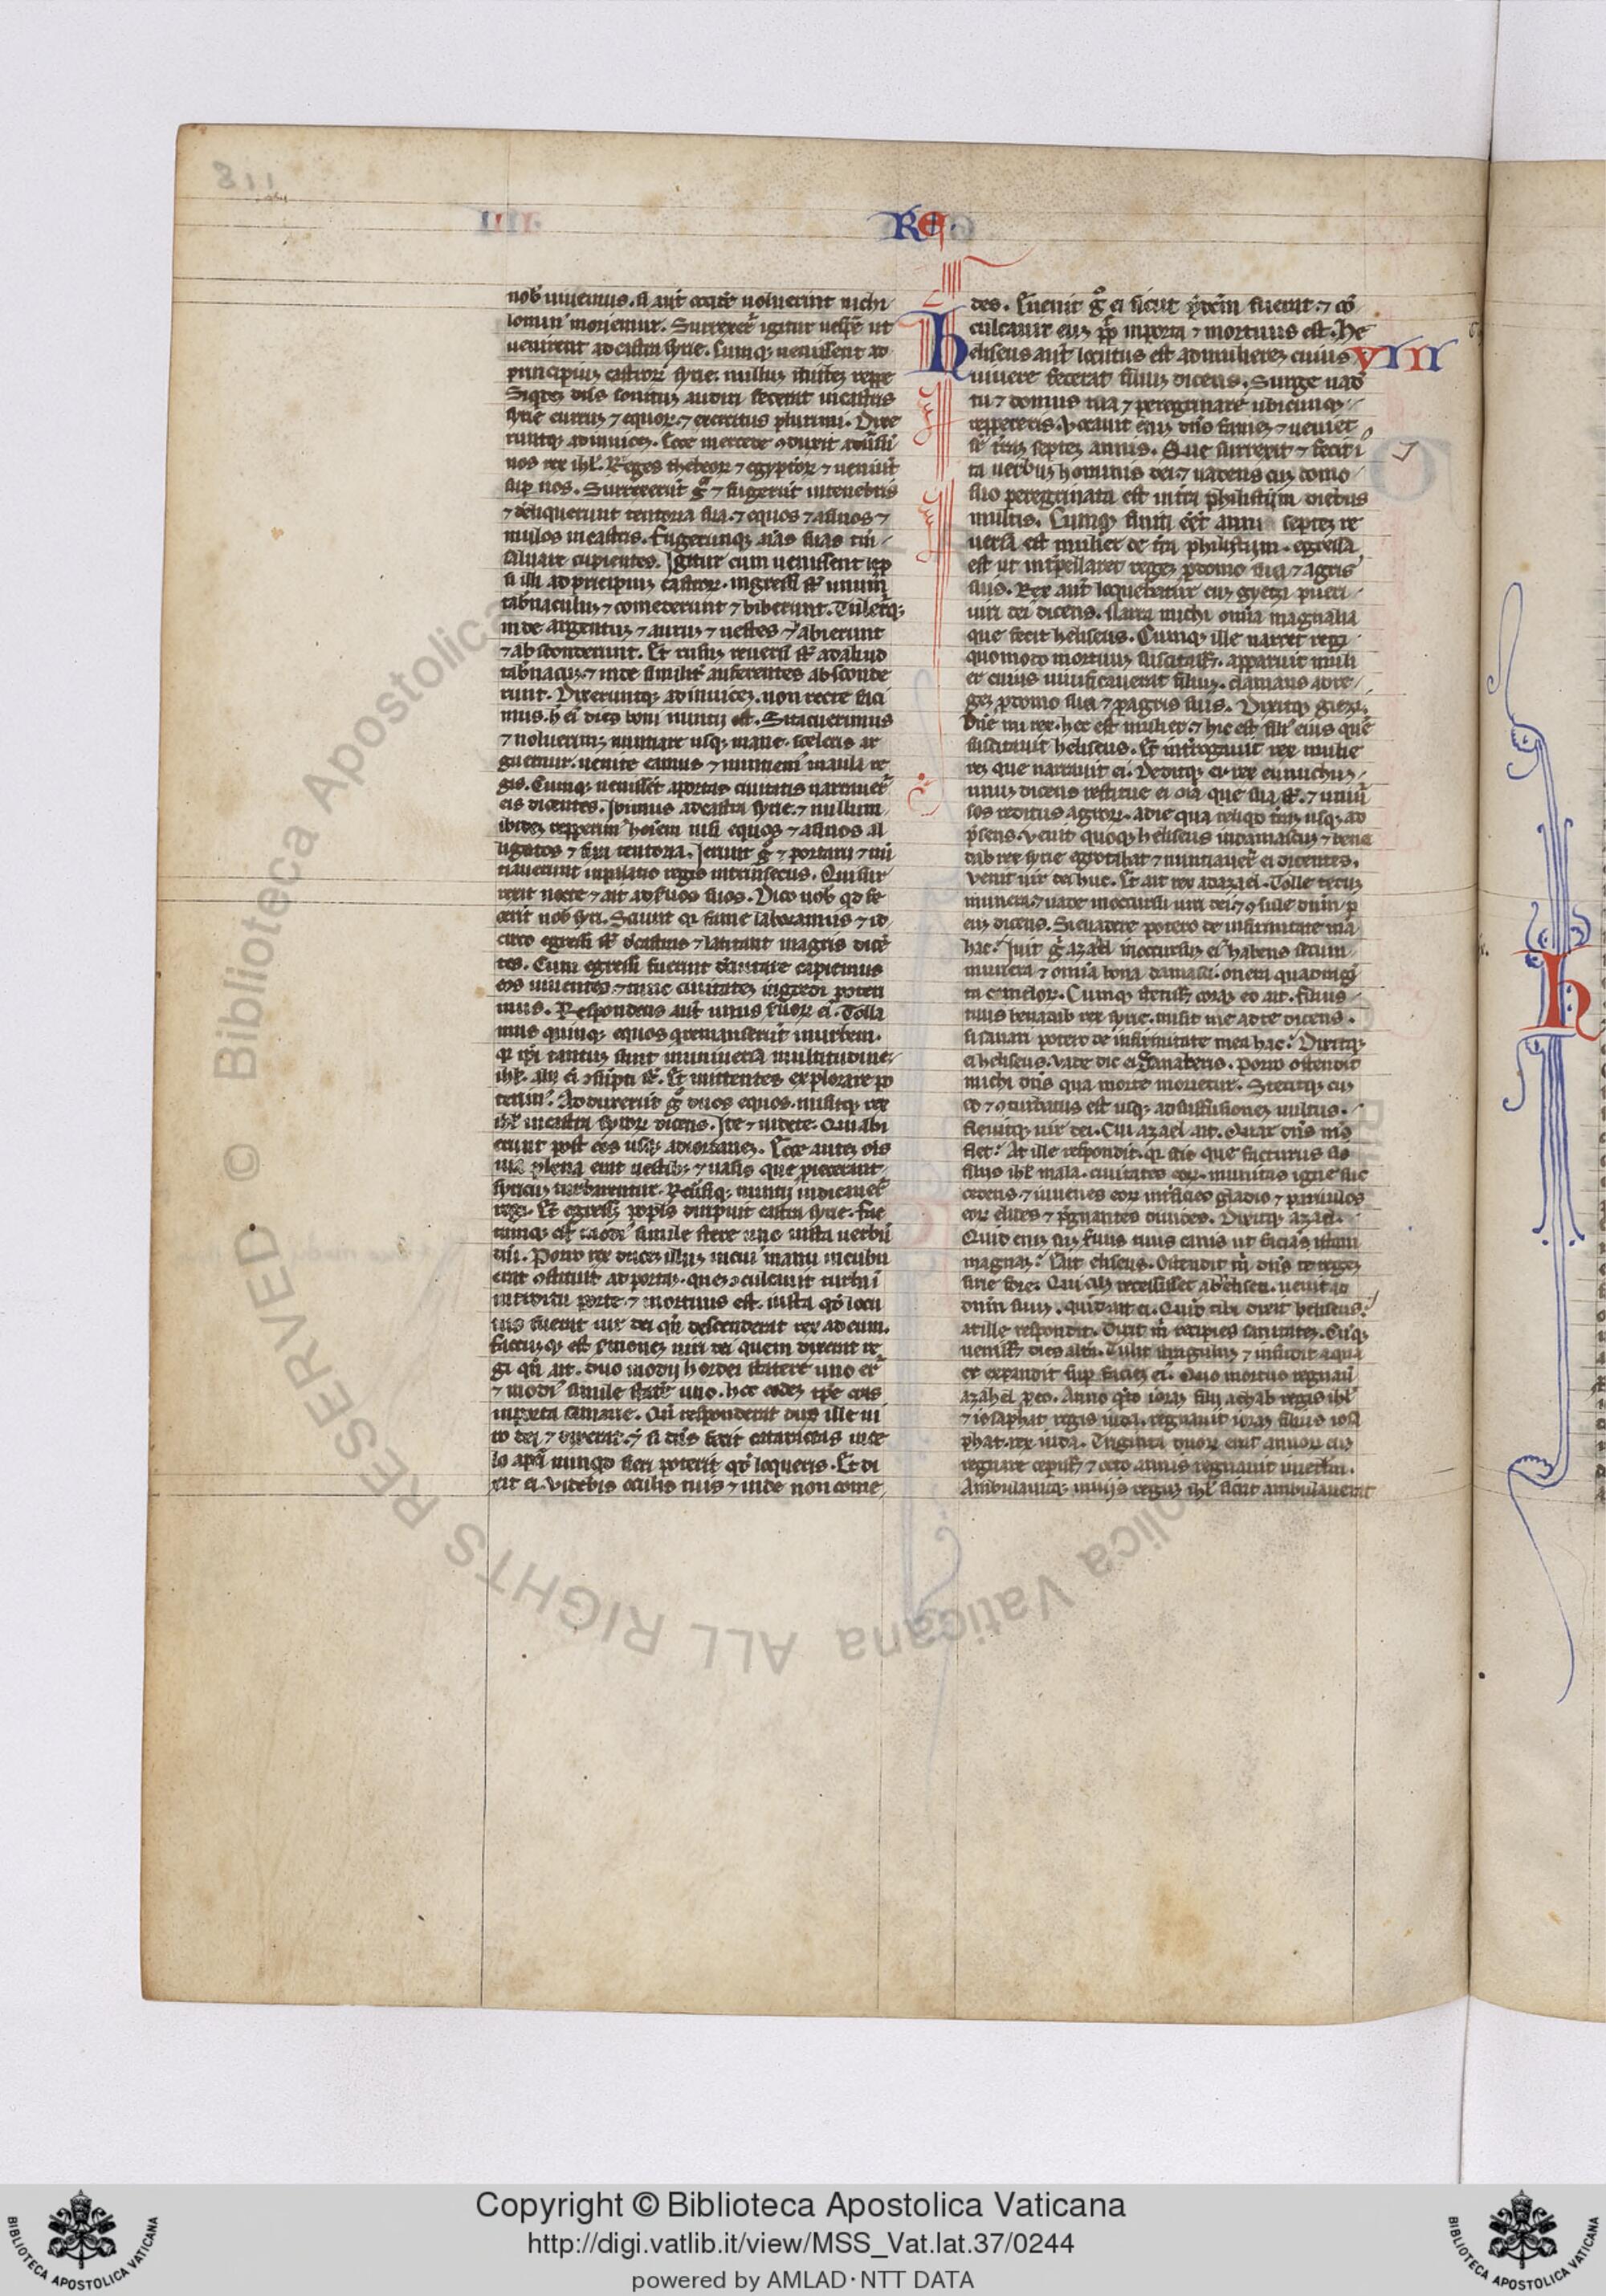 811
RE
nob' uiuemus. si aut̄ occid'e uoluerint nichi
lomin' moriemur. Surrexer̄t igitur uesp̄e ut
uenirent ad castra syrie. Cumq; uenissent ad
principiuʒ castroꝝ syrie: nulluʒ ibideʒ rep̄pe
Siq'deʒ dn̄s sonituʒ audiri fecerat in castris
syrie curruuʒ ⁊ equoꝝ. ⁊ exercitus plurimi. Dixe
runtq; ad inuiceʒ. Ecce mercede ꝯduxit aduersū
nos rex isrl'. Reges etheoꝝ ⁊ egyptioꝝ ⁊ uenerūt
sup nos. Surrexerūt g̊ ⁊ fugerūt in tenebris
⁊ d'eliquerunt tentoria sua. ⁊ equos ⁊ asinos ⁊
mulos in castris. Fugeruntq; aīas suas tm̄
saluare cupientes. Igitur cum uenissent lep
si illi ad principiuʒ castroꝝ. ingressi st̄ unum
tab'naculuʒ ⁊ comederunt ⁊ biberunt. Tulerūtq;
inde argentuʒ ⁊ auruʒ ⁊ uestes ⁊ abierunt
⁊ absconderunt. Et rursuʒ reuersi st̄ ad aliud
tab'nacl'ʒ ⁊ inde similit' auferentes absconde
runt. Dixeruntq; ad inuiceʒ. non recte faci
mus. h' eī dies boni nuntij est. Si tacuerimus
⁊ noluerimʒ nuntiare usq; mane. sceleris ar
guemur. uenite eamus ⁊ nuntiem' in aula re
gis. Cumq; uenissēt ad portaʒ ciuitatis narrauer̄t
eis dicentes. Iuimus ad castra syrie. ⁊ nullum
ibideʒ repperim' hoīem nisi equos ⁊ asinos al
ligatos ⁊ fixa tentoria. Ierunt g̊ ⁊ portarii ⁊ nū
tiauerunt in palatio regis intrinsecus. Qui sur
rexit nocte ⁊ ait ad s'uos suos. Dico uob' qd fe
cerīt nob' syri. Sciunt qr fame laboramus ⁊ id
circo egressi st̄ d' castris ⁊ latitant in agris dicē
tes. Cum egressi fuerint d' ciuitate capiemus
eos uiuentes ⁊ tunc ciuitateʒ ingredi poteri
mus. Respondens aut̄ unus s'uoꝝ ei'. Tolla
mus quinq; equos q remanserūt in urbem.
qr ip̄i tantuʒ sunt in uniuersa multitudine
isrl'. alij eī ꝯsūpti st̄. Et mittentes explorare po
terim'. Adduxerūt g̊ duos equos. misitq; rex
isrl' in castra syroꝝ dicens. Ite ⁊ uidete. Qui abi
erunt post eos usq; ad iordaneʒ. Ecce auteʒ oīs
uia plena erat uestib'ʒ ⁊ uasis que proiecerant
syri cuʒ turbarentur. Reuersiq; nuntij indicauer̄t
regi. Et egressus popl's diripuit castra syrie. fac
tusq; est modi' simile statere uno iuxta uerbū
dn̄i. Porro rex duceʒ illuʒ in cui' manu incūbe
erat ꝯstituit ad portaʒ. queʒ ꝯculcauit turba ī
introitu porte. ⁊ mortuus est. iuxta qd' locu
tus fuerat uir dei qn̄ descenderat rex ad eum.
factuʒq; est s'moneʒ uiri dei quem dixerat re
gi qn̄ ait. duo modij hordei statere uno er̄t
⁊ modi' simile stat'e uno. hoc eodeʒ tp̄e cras
in porta samarie. Qn̄ responderat dux ille ui
ro dei ⁊ dixerat. et' si dn̄s fecit cataractas in ce
lo apq nunqd fieri poterit qd' loqueris. Et di
xit ei. Videbis oculis tuis ⁊ inde non come
des. Euenit g̊ ei sicut p̄dcm̄ fuerat ⁊ cō
culcauit euʒ pp̄l's in porta ⁊ mortuus est. he
VIII
eliseus aut̄ locutus est ad muliereʒ cuius
uiuere fecerat filiuʒ dicens. Surge uad'
tu ⁊ domus tua ⁊ peregrinare ubicunq;
reppereris. Vocauit enīʒ dn̄s fameʒ ⁊ ueniet
sr' t'raʒ septeʒ annis. Que surrexit ⁊ fecit i
ta uerbuʒ hominis dei. ⁊ uadens cuʒ domo
sua peregrinata est in t'ra philistijm diebus
multis. Cumq; finiti ēēt anni septeʒ re
uersa est mulier de t'ra philistium. egressa
est ut int'pellaret regeʒ p̱ domo sua ⁊ agris
suis. Rex aut̄ loquebatur cuʒ gyezi puero
uiri dei dicens. Narra michi om̄ia magnalia
que fecit heliseus. Cumq; ille narrēt regi
quomodo mortuuʒ suscitass;. apparuit muli
er cuius uiuificauerat filiuʒ. clamans ad re
geʒ p̱ domo sua ⁊ p̱ agris suis. Dixitq; giezi.
Dn̄e mi rex. hec est mulier. ⁊ hic est fili' eius quē
suscitauit heliseus. Et int'rogauit rex mulie
reʒ que narrauit ei. Deditq; ei rex eunuchuʒ
unuʒ dicens restitue ei oīa que sua st̄. ⁊ uniūsos
sos reditus agroꝝ. a die qua reliqd t'raʒ usq; ad
p̄sens. Venit quoq; heliseus in damascuʒ ⁊ bena
dab rex syrie egrotabat ⁊ nuntiauer̄t ei dicentes.
Venit uir dei huc. Et ait rex ad azael. Tolle tecuʒ
munera. ⁊ uade in occursū uiri dei. ⁊ ꝯsule dn̄m p̱
euʒ dicens. Si euadere potero de infirmitate mea
hac? Iuit g̊ azael in occursuʒ ei' habens secum
munera ⁊ omnia bona damasci. onera quadraginta
ta cameloꝝ. Cumq; stetiss; coraʒ eo ait. filius
tuus benadab rex syrie. misit me ad te dicens.
si sanari potero de infirmitate mea hac? Dixitq;
ei heliseus. Vade dic ei sanaberis. Porro ostendit
michi dn̄s qua morte morietur. Stetitq; cuʒ
eo ⁊ ꝯturbatus est usq; ad suffusioneʒ uultus.
fleuitq; uir dei. Cui azael ait. Quare dn̄s m's
flet? At ille respondit. qr scio que facturus sis
filiis isrl' mala. ciuitates eoꝝ. munitas igne suc
cendes. ⁊ iuuenes eoꝝ int'ficies gladio ⁊ paruulos
eoꝝ elides ⁊ p̄gnantes diuides. Dixitq; azael.
Quid enīʒ suʒ s'uus tuus canis ut faciaʒ rem istam
magnaʒ? Et ait eliseus. Ostendit m̄ dn̄s te regeʒ
sirie fore. Qui cuʒ recessisset ab heliseo. uenit ad
dn̄m suuʒ. qui ait ei. Quid tibi dixit heliseus?
at ille respondit. Dixit m̄ recipies sanitateʒ. Cūq;
ueniss; dies alt'a. Tulit stragulūʒ ⁊ infudit aqua
et expandit sup facieʒ ei'. Quo mortuo regnaū
azahel p̱ eo. Anno q'nto ioraʒ filij achab regis isrl'
⁊ iosaphat regis iuda. regnauit ioraʒ filius iosa
phat. rex iuda. Triginta duoꝝ erat annoꝝ cuʒ
regnare cepiss; ⁊ octo annis regnauit in ierl'm.
Ambulauitq; in uijs reguʒ isrl' sicut ambulauerat
h
BIBLIOTECA APOSTOLICA VATICANA
© Biblioteca Apostolica Vaticana ALL RIGHTS RESERVED
Copyright © Biblioteca Apostolica Vaticana
http://digi.vatlib.it/view/MSS_Vat.lat.37/0244
powered by AMLAD·NTT DATA
BIBLIOTECA APOSTOLICA VATICANA